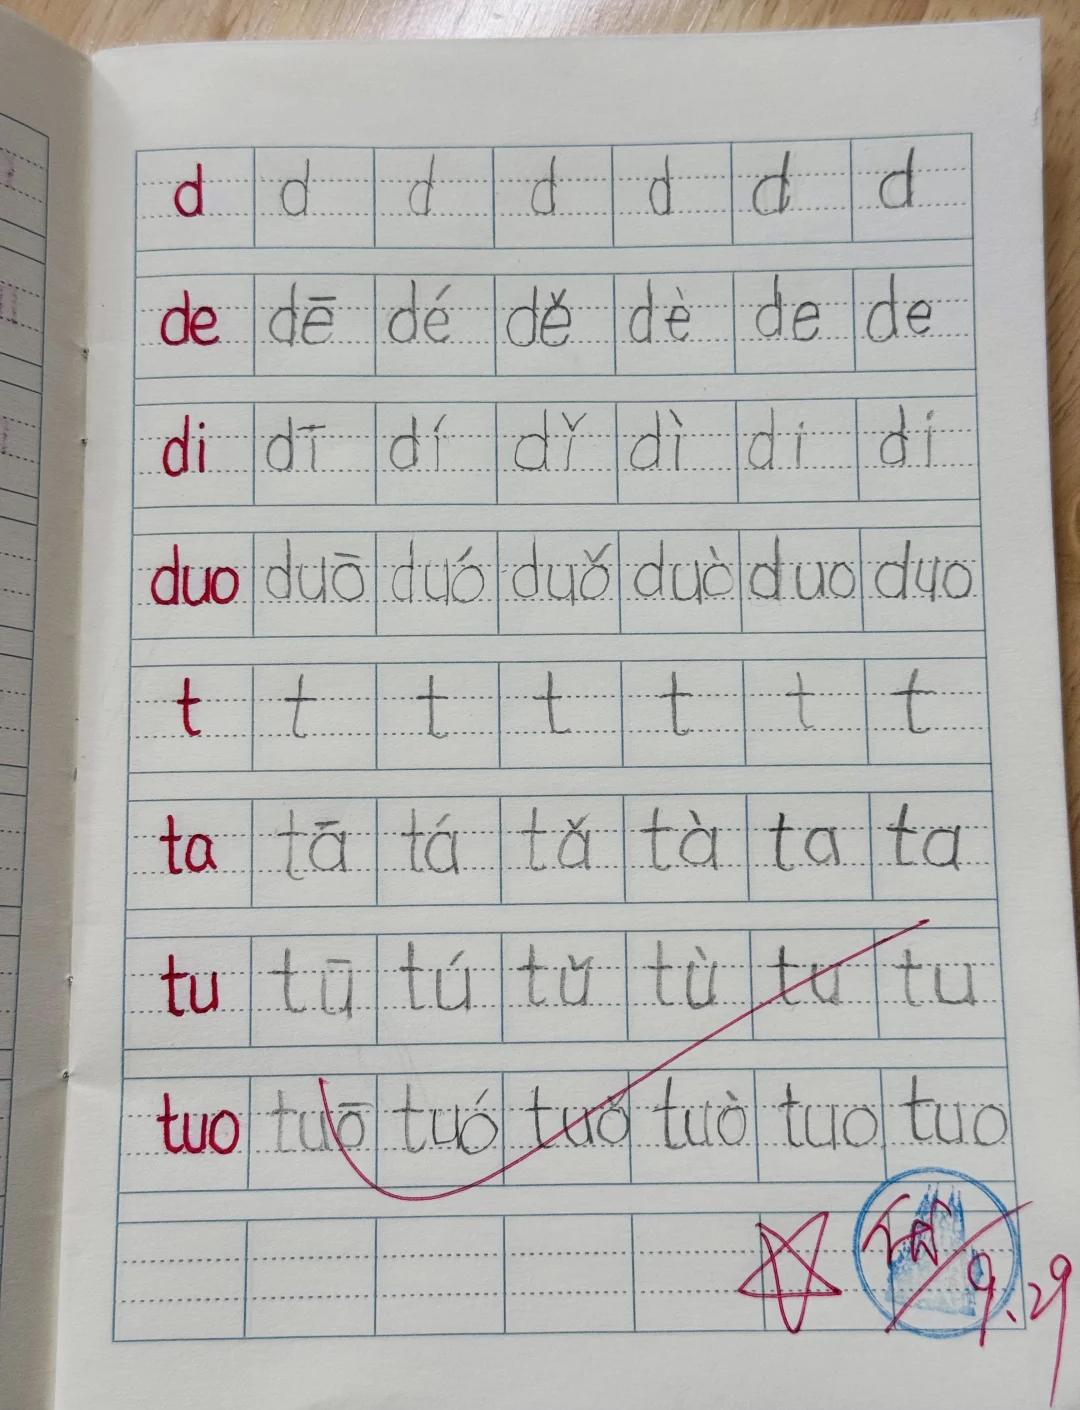 d d d d d d d
de dē dé dě dè de de
di dī dí dǐ dì di di
duo duō duó duǒ duò duo duo
t t t t t t t
ta tā tá tǎ tà ta ta
tu tū tú tǔ tù tu tu
tuo tuō tuó tuǒ tuò tuo tuo
9.29